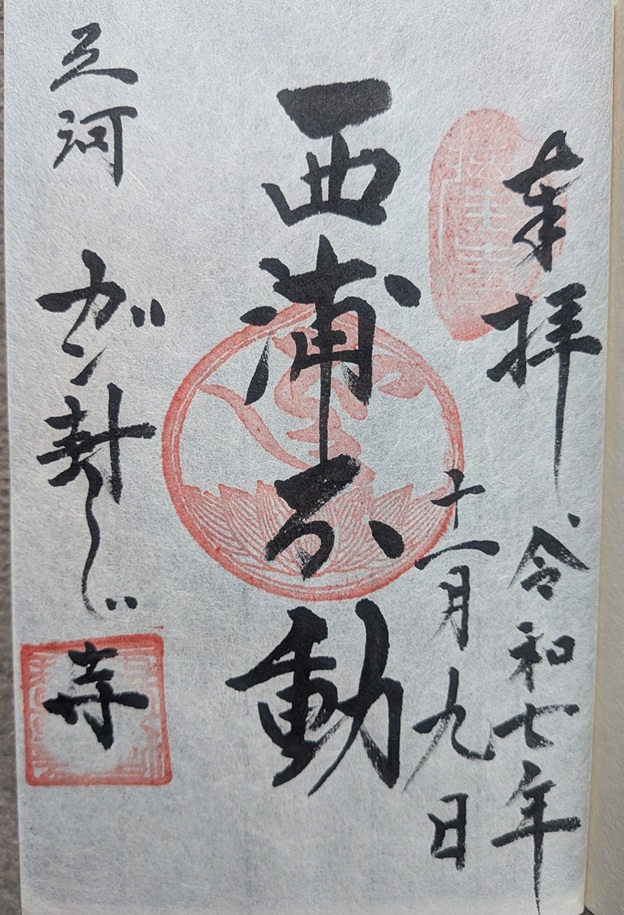 奉拝
令和七年
十一月九日
西浦不動
三河
ガン封じ寺